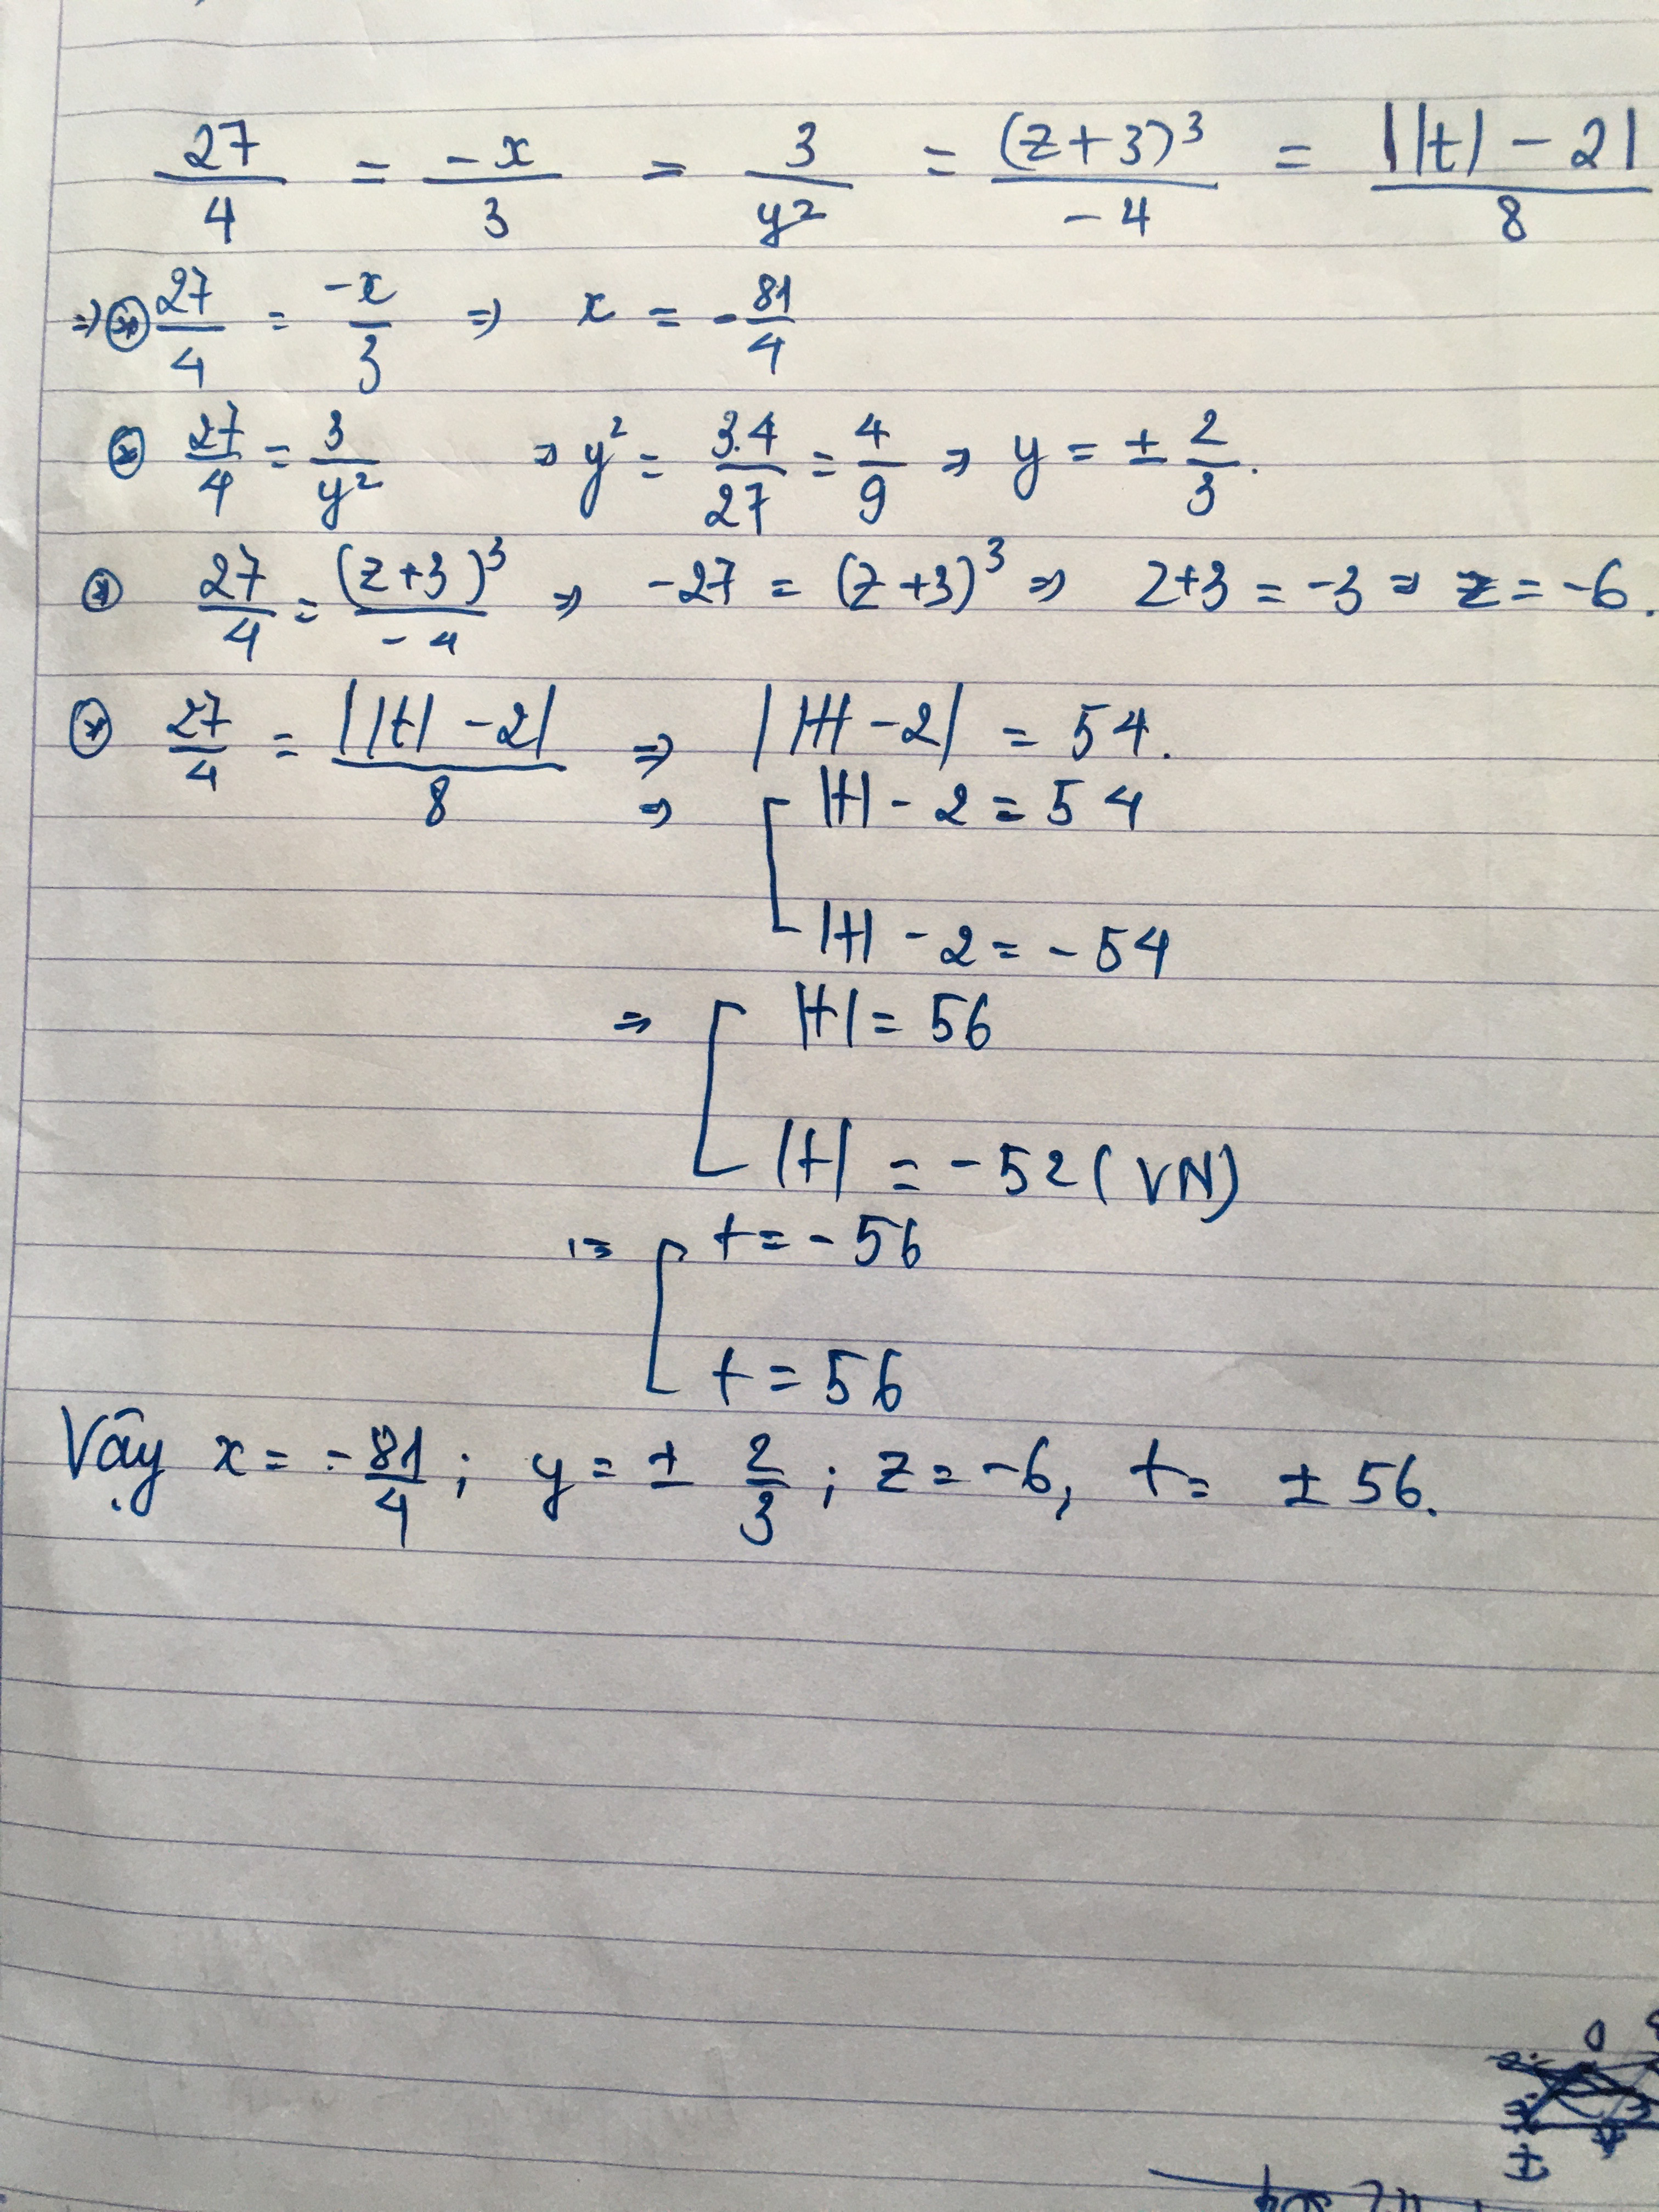 27/4 = -x/3 = 3/y² = (z+3)³/-4 = ||t|-2|/8
=> ⊛ 27/4 = -x/3 => x = -81/4
⊛ 27/4 = 3/y² => y² = 3.4/27 = 4/9 => y = ± 2/3.
⊛ 27/4 = (z+3)³/-4 => -27 = (z+3)³ => z+3 = -3 => z = -6.
⊛ 27/4 = ||t|-2|/8 => ||t|-2| = 54.
=> [ |t| - 2 = 54
|t| - 2 = -54
=> [ |t| = 56
|t| = -52 (VN)
=> [ t = -56
t = 56
Vậy x = -81/4; y = ± 2/3; z = -6, t = ± 56.